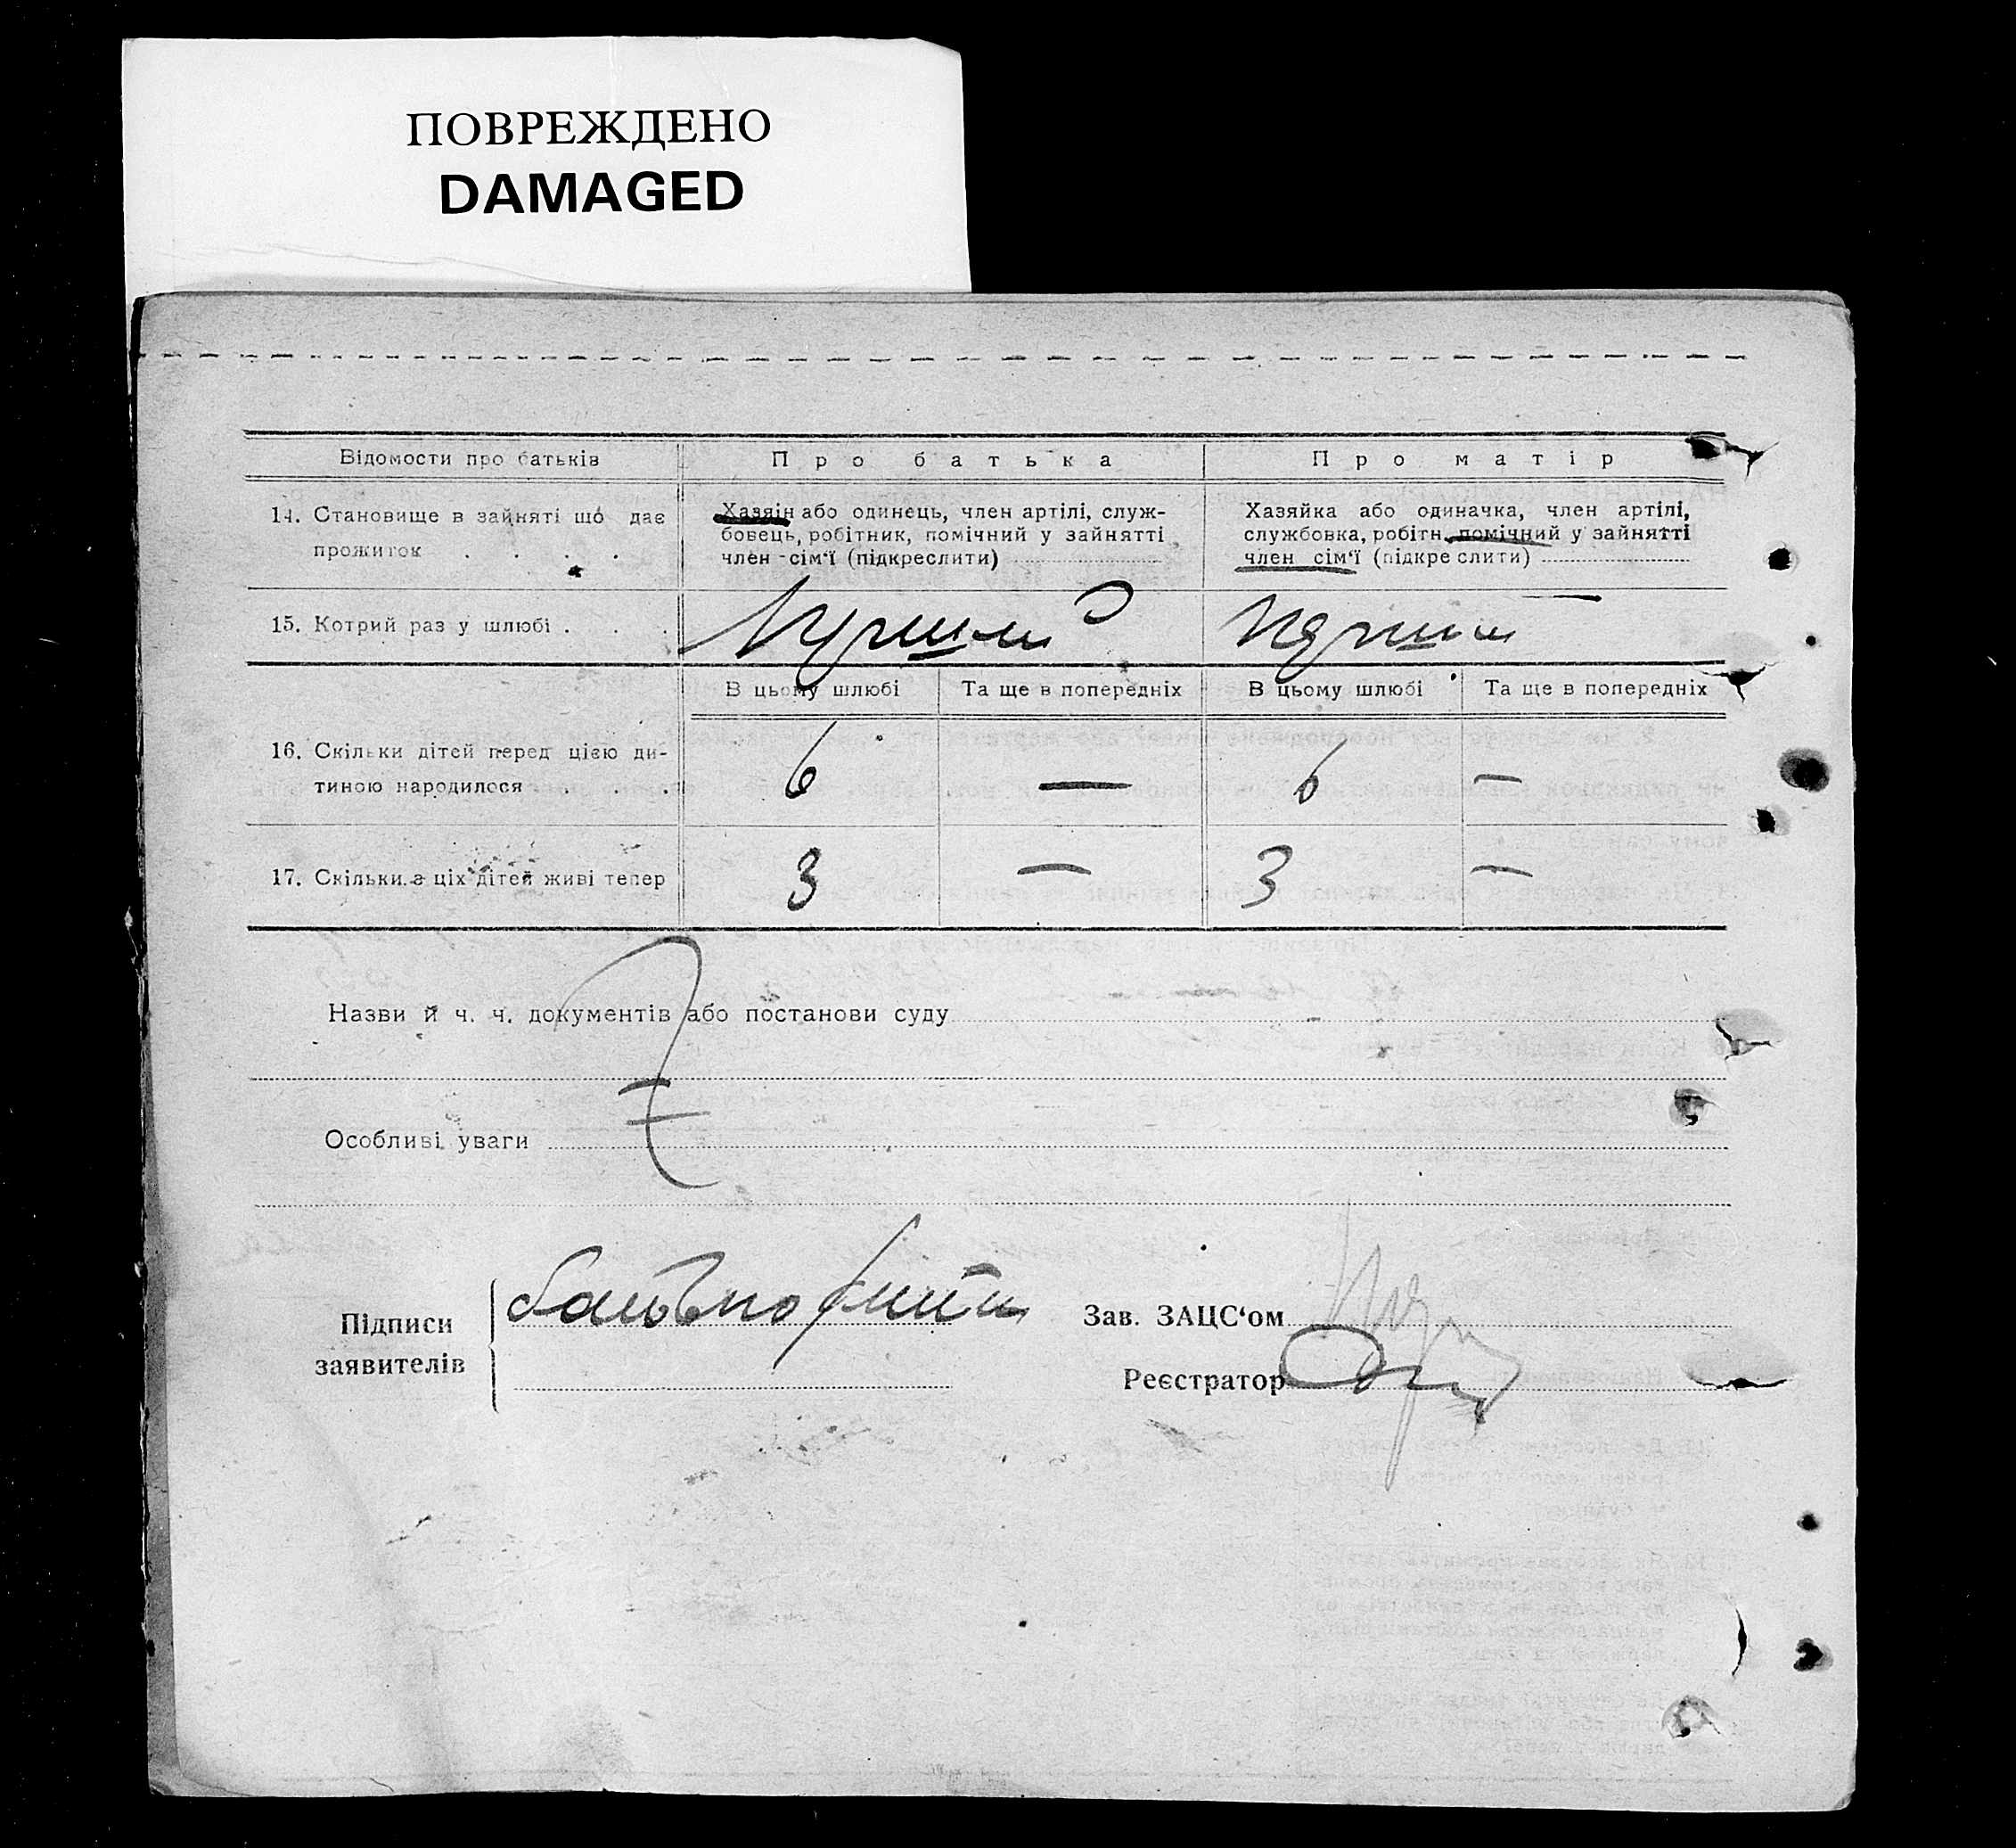 ПОВРЕЖДЕНО
DAMAGED
Відомости про батьків
Про батька
Про матір
14. Становище в зайняті що дає
прожиток . . . .
Хазяін або одинець, член артілі, служ-
бовець, робітник, помічний у зайнятті
член сім‘ї (підкреслити)
Хазяйка або одиначка, член артілі,
службовка, робітн. помічний у зайнятті
член сім‘ї (підкреслити)
15. Котрий раз у шлюбі . . .
В цьому шлюбі
Та ще в попередніх
В цьому шлюбі
Та ще в попередніх
16. Скільки дітей перед цією ди-
тиною народилося . . .
6 — 6 —
17. Скільки з ціх дітей живі тепер
3 — 3 —
Назви й ч. ч. документів або постанови суду
Особливі уваги
Підписи
заявителів
Зав. ЗАЦС‘ом
Реєстратор